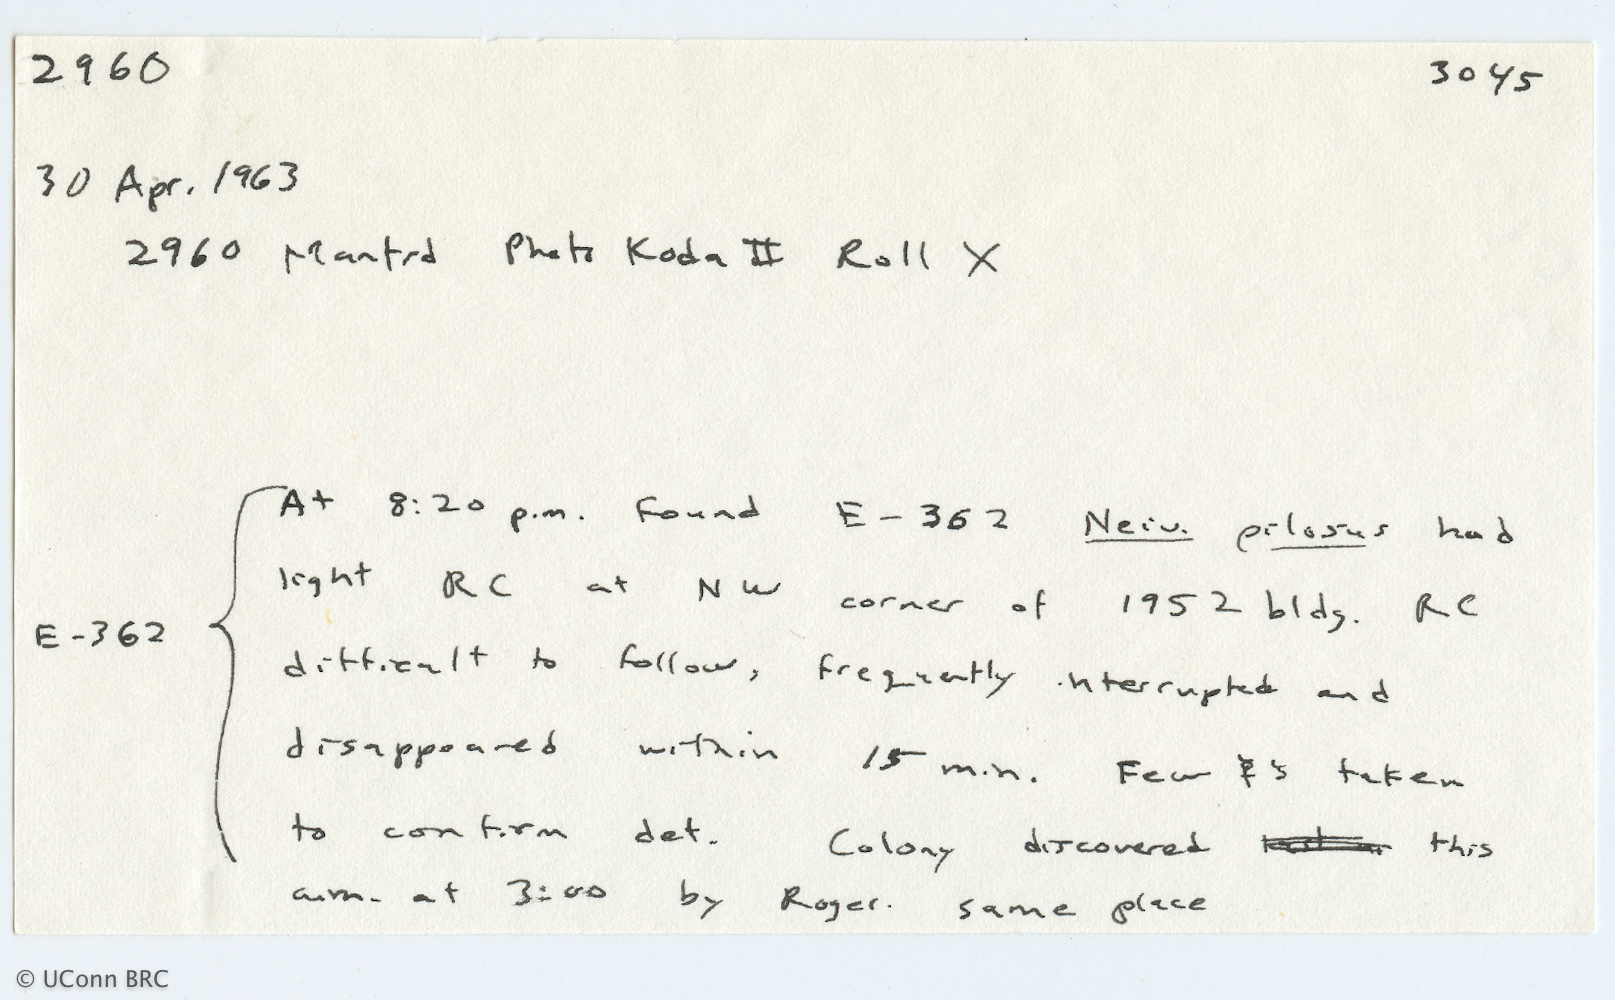 2960 3045
30 Apr. 1963
2960 Mantid Photo Koda II Roll X
At 8:20 p.m. found E-362 Neiv. pilosus had
light RC at NW corner of 1952 bldg. RC
E-362
difficult to follow, frequently interrupted and
disappeared within 15 min. Few s taken
to confirm det. Colony discovered this
a.m. at 3:00 by Roger. same place
© UConn BRC